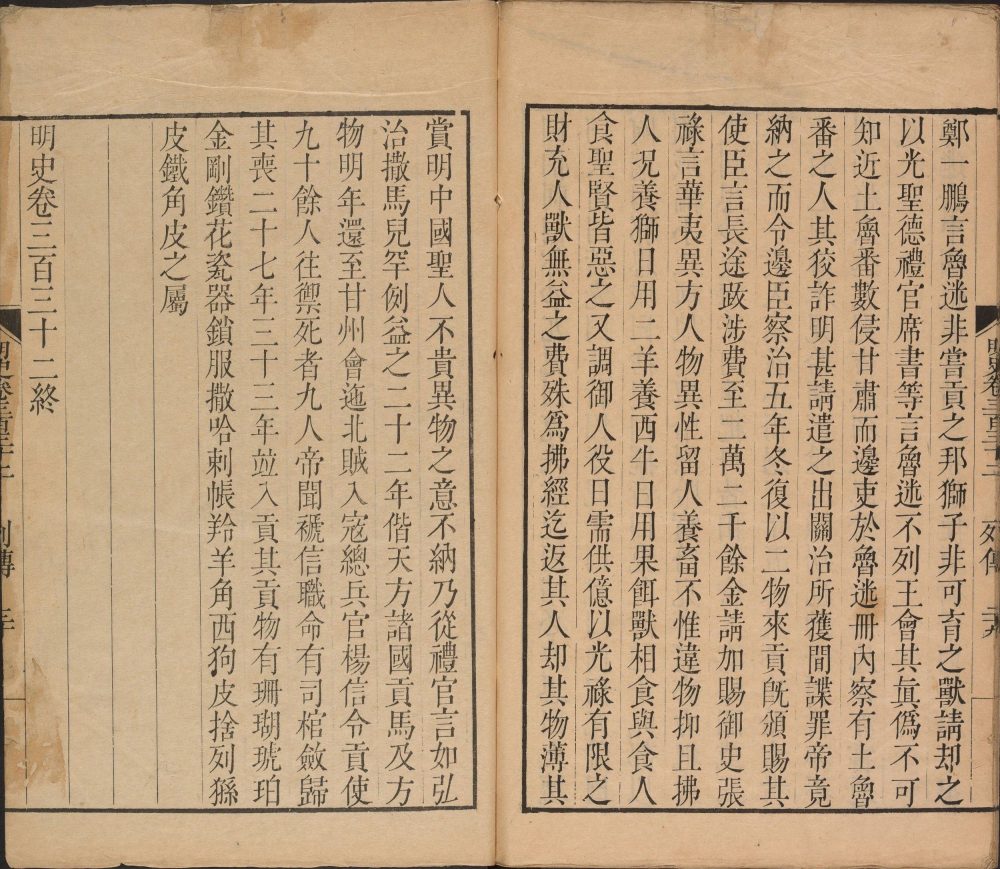 鄭一鵬言魯迷非嘗貢之邦獅子非可育之獸請却之
以光聖德禮官席書等言魯迷不列王會其眞僞不可
知近土魯番數侵甘肅而邊吏於魯迷冊內察有土魯
番之人其狡詐明甚請遣之出關治所獲間諜罪帝竟
納之而令邊臣察治五年冬復以二物來貢旣頒賜其
使臣言長途跋涉費至二萬二千餘金請加賜御史張
祿言華夷異方人物異性留人養畜不惟違物抑且拂
人況養獅日用二羊養西牛日用果餌獸相食與食人
食聖賢皆惡之又調御人役日需供億以光祿有限之
財充人獸無益之費殊爲拂經乞返其人却其物薄其
明史卷三百三十二 列傳
賞明中國聖人不貴異物之意不納乃從禮官言如弘
治撒馬兒罕例益之二十二年偕天方諸國貢馬及方
物明年還至甘州會迤北賊入寇總兵官楊信令貢使
九十餘人往禦死者九人帝聞褫信職命有司棺斂歸
其喪二十七年三十三年竝入貢其貢物有珊瑚琥珀
金剛鑽花瓷器鎖服撒哈剌帳羚羊角西狗皮捨列猻
皮鐵角皮之屬
明史卷三百三十二終
明史卷三百三十二 列傳 三十